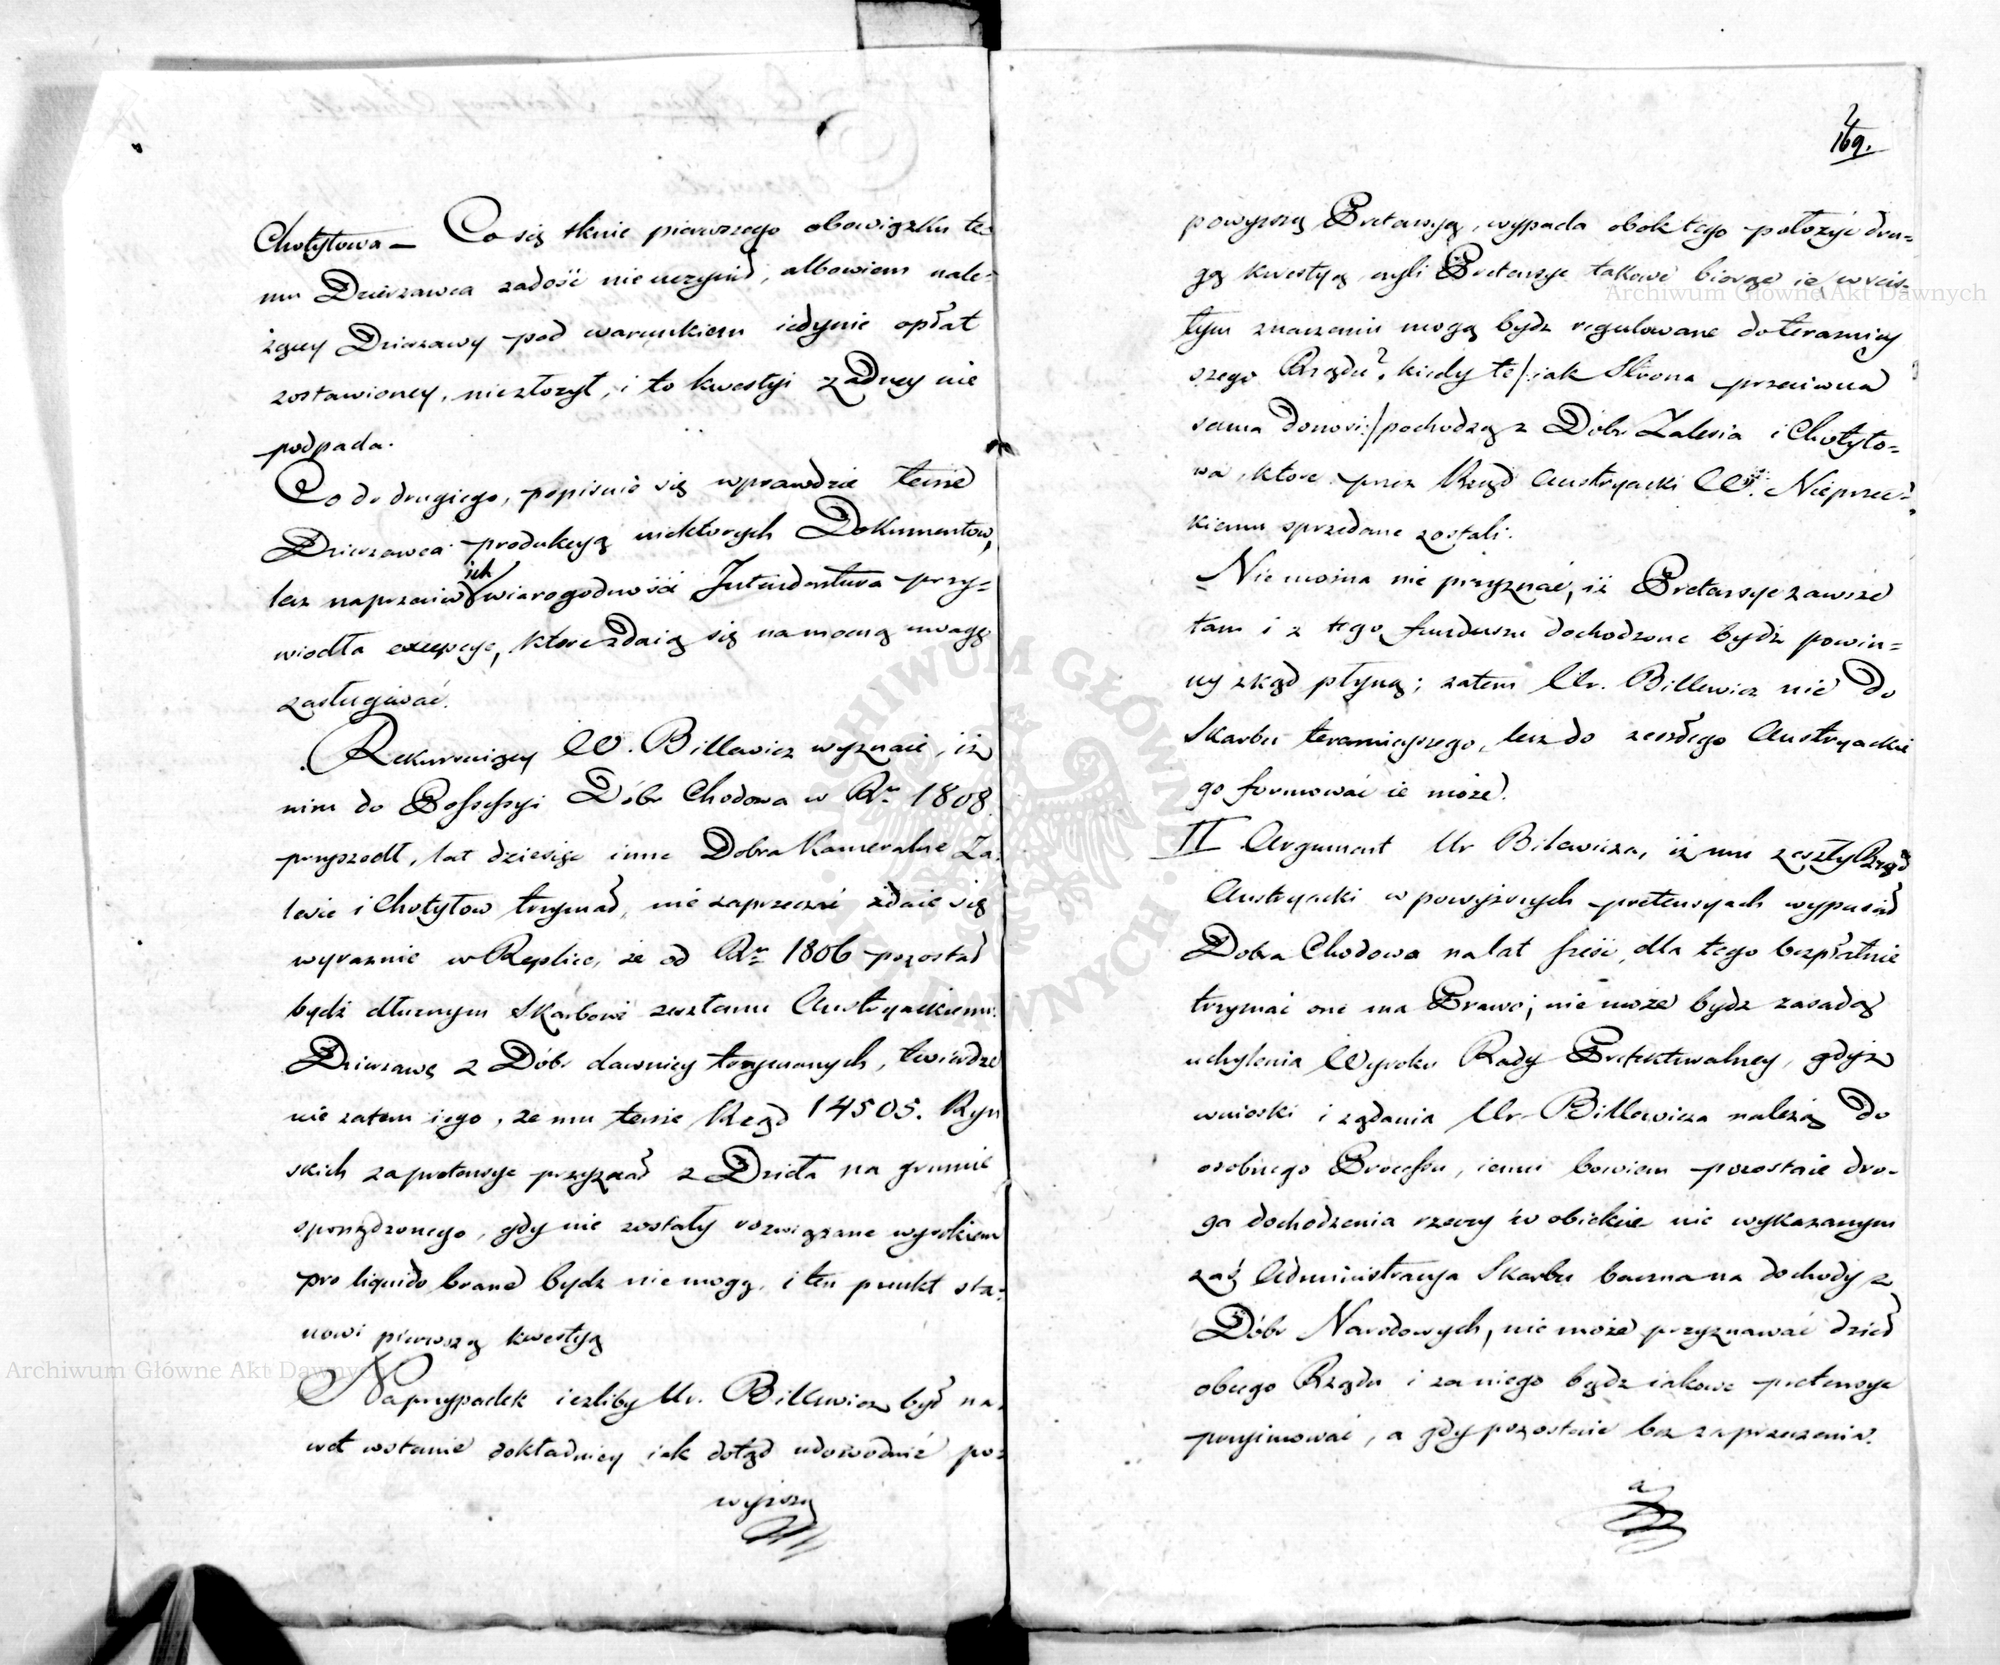 Chotyłowa — Co się tknie pierwszego obowiązku te=
mu Dzierzawca zadość nie uczynił, albowiem nale=
żącey Dzierzawy pod warunkiem iedynie opłat
zostawioney, niezłożył, i to kwestyi żadney nie
podpada.
Co do drugiego, popisuie się wprawdzie tenże
Dzierzawca produkcyą niektorych Dokumentow,
lecz naprzeciw ich wiarogodność Intendentura przy=
wiodła excepcye, ktore zdaią się na mocną uwagę
zasługiwać.
Rekuruiący W. Billewicz wyznaie, iż
nim do Possessyi Dóbr Chodowa w Rᵘ 1808
przyszedł, lat dziesięć inne Dobra Kameralne Za=
lesie i Chotyłow trzymał, nie zaprzeczać zdaie się
wyraznie w Replice, że od Rᵘ 1806 pozostał
bydź dłużnym Skarbowi zeszłemu Austryackiemu
Dzierzawę z Dóbr dawniey trzymanych, twierdze
nie zatem iego, że mu tenże Rząd 14505. Ryn
skich za pretensye przyznał z Dzieła na gruncie
sporządzonego, gdy nie zostały rozwiązane wyrokiem
pro liquido brane bydz nie mogą, i ten punkt sta=
nowi pierwszą kwestyą
Na przypadek ieżliby Ur. Billewicz był na=
wet wstanie dokładniey iak dotąd udowodnić po=
wyższą
169.
powyższą Pretensyą, wypada obok tego położyć dru=
gą kwestyą czyli Pretensye takowe biorąc ie w ścis=
łym znaczeniu mogą bydz regulowane do terazniey
szego Rządu? kiedy te /: iak Strona przeciwna
sama donosi :/ pochodzą z Dóbr Zalesia i Chotyło=
wa, ktore przez Rząd Austryacki W. Nieprzec=
kiemu sprzedane zostali.
Nie można nie przyznać, iż Pretensye zawsze
tam i z tego funduszu dochodzone bydź powin=
ny zkąd płyną; zatem Ur. Billewicz nie do
Skarbu teraznieyszego, lecz do zeszłego Austryackie
go formować ie może.
II Argument Ur Bilewicza, iż mu zeszły Rząd
Austryacki w powyższych pretensyach wypuścił
Dobra Chodowa na lat sześć, dla tego bezpłatnie
trzymać one ma Prawo; nie może bydz zasadą
uchylenia Wyroku Rady Prefekturalney, gdyż
wnioski i ządania Ur Billewicza należą do
osobnego Processu, iemu bowiem pozostaie dro=
ga dochodzenia rzeczy w obiekcie nie wykazanym
zaś Administracya Skarbu baczna na dochody z
Dóbr Narodowych, nie może przyznawać dzieł
obcego Rządu i za niego bądz iakowe pretensye
przyimować, a gdy pozostaie bez zaprzeczenia.
a
Archiwum Główne Akt Dawnych
Archiwum Główne Akt Dawnych
ARCHIWUM GŁÓWNE AKT DAWNYCH